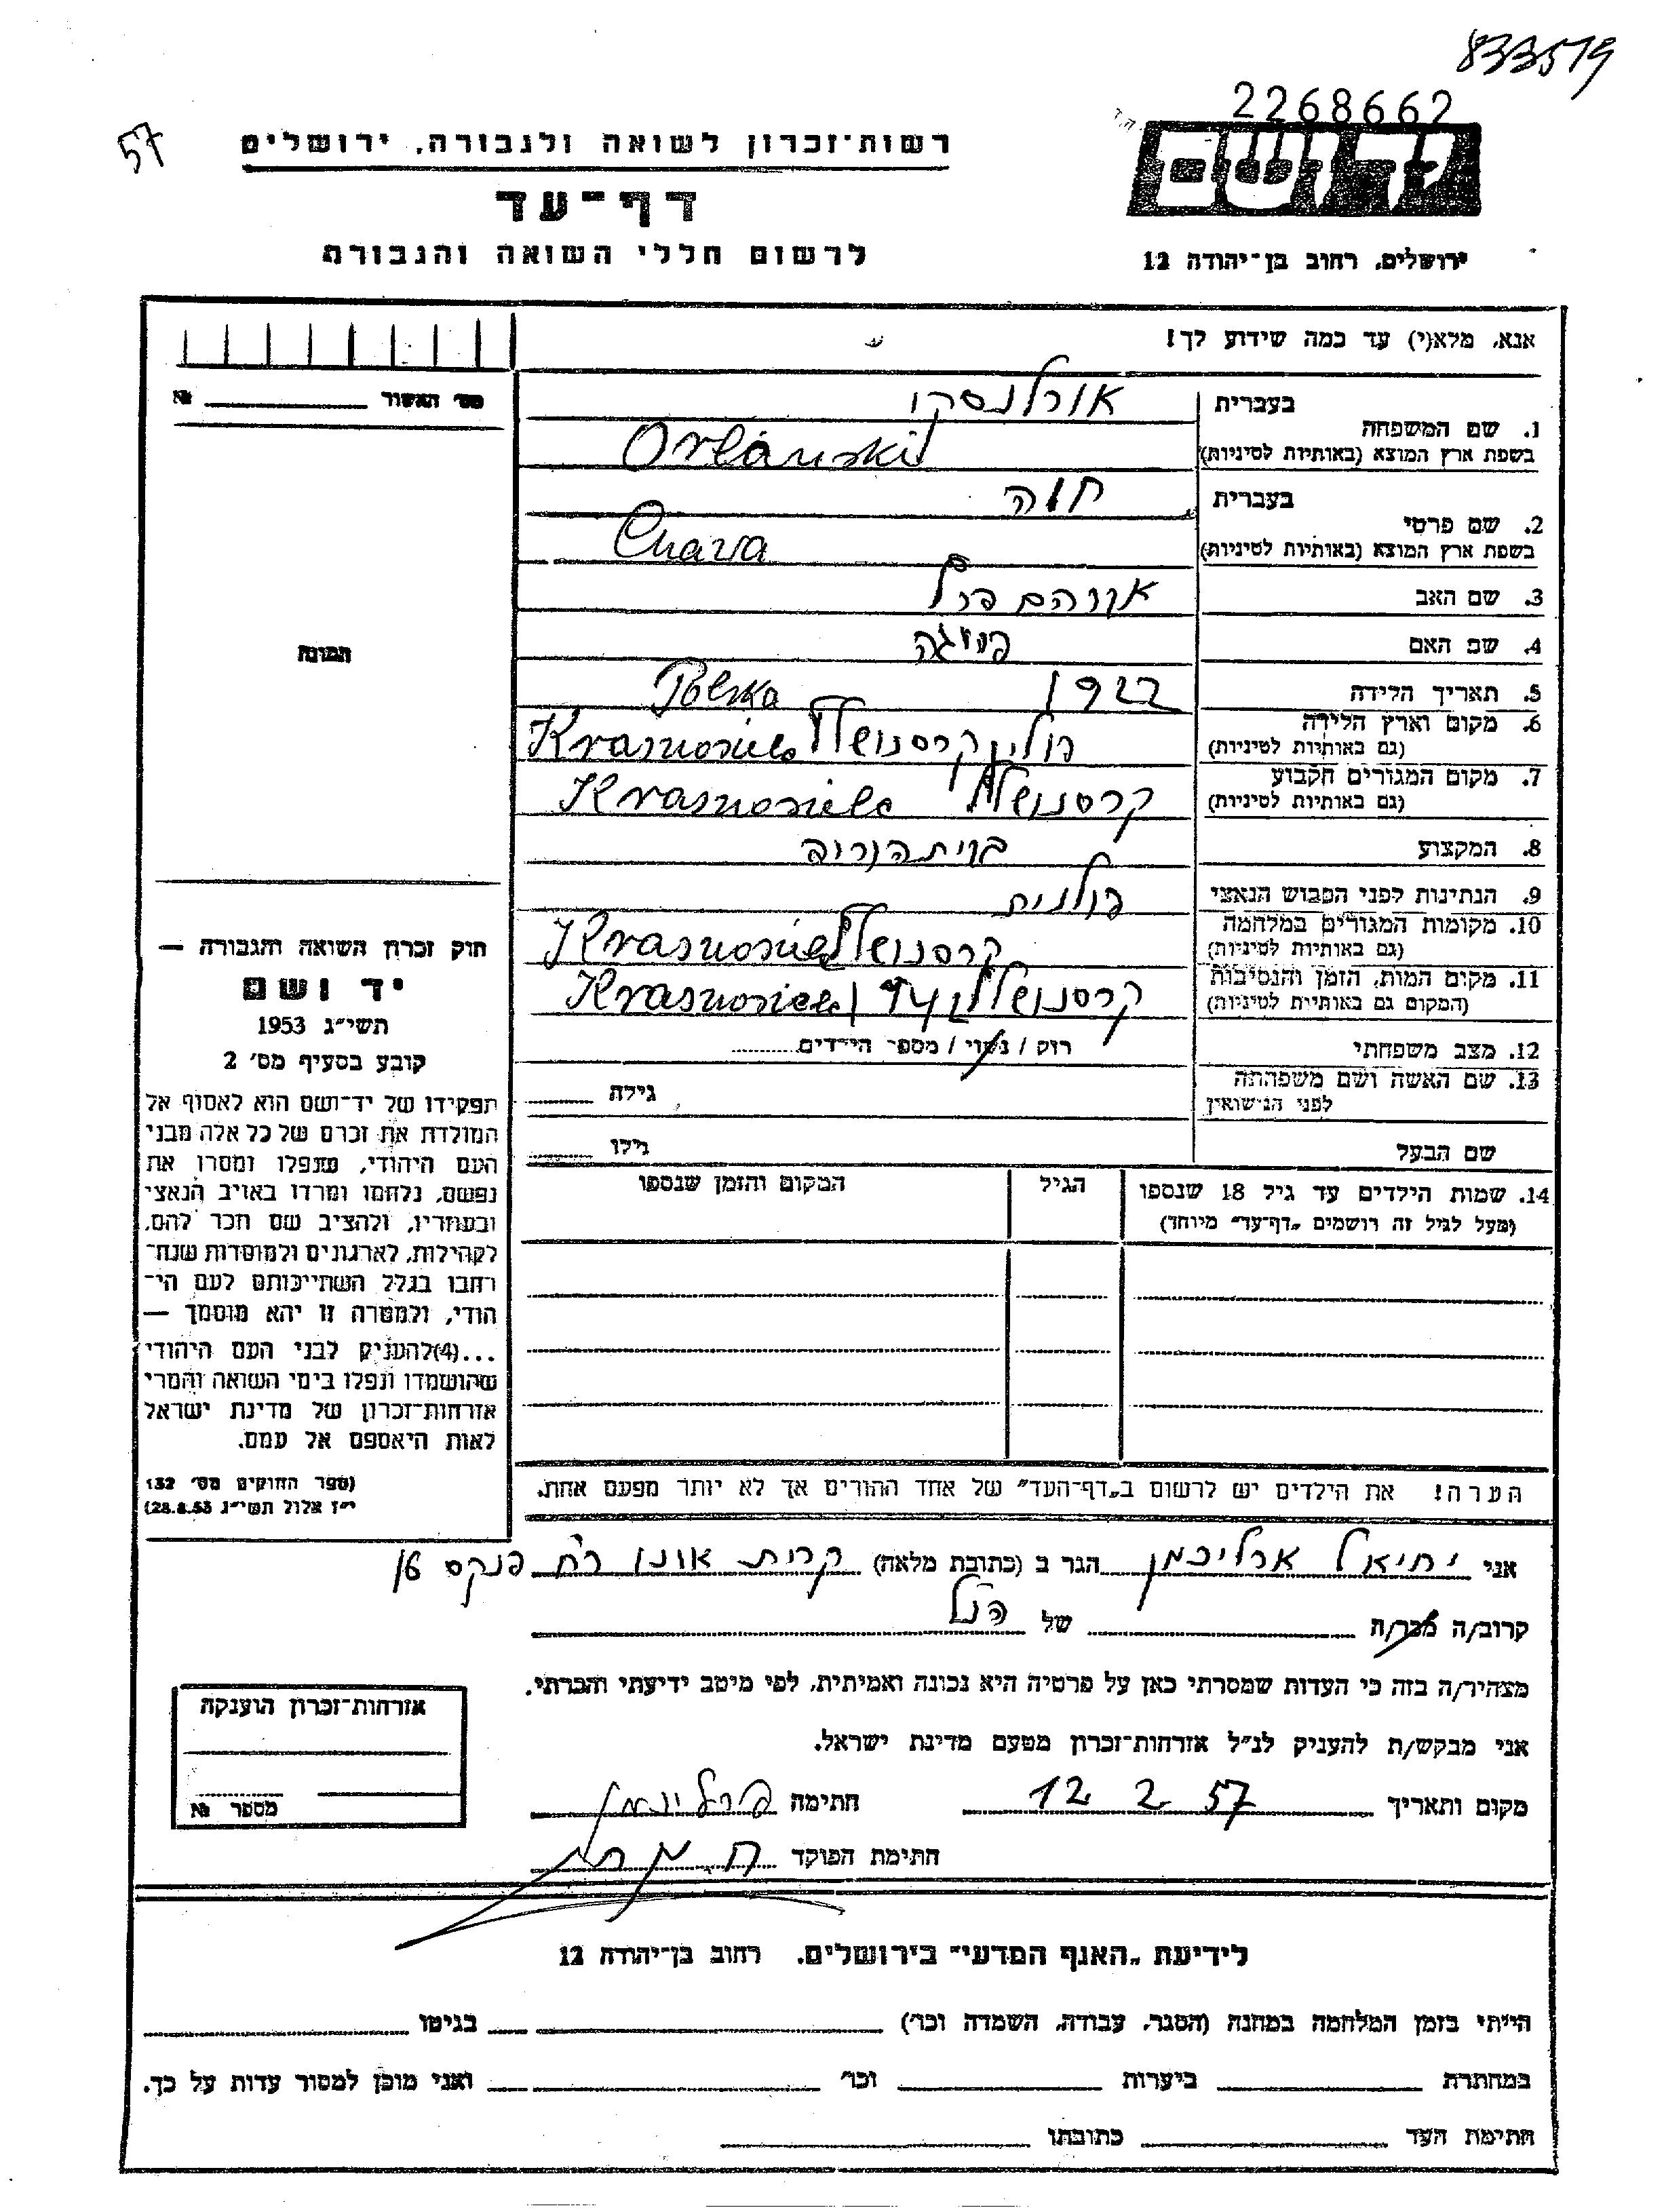 833519
2268662
57
רשות־זכרון לשואה ולגבורה, ירושלים
דף־עד
לרשום חללי השואה והגבורה
ידושם
ירושלים, רחוב בן־יהודה 12
אנא, מלא(י) עד כמה שידוע לך!
מס׳ האשור № ______
1. שם המשפחה בעברית אורלנסקי
בשפת ארץ המוצא (באותיות לטיניות) Orlanski
2. שם פרטי בעברית חוה
בשפת ארץ המוצא (באותיות לטיניות) Chava
3. שם האב אברהם ברל
4. שם האם פייגה
5. תאריך הלידה 1922 Polska
6. מקום וארץ הלידה (גם באותיות לטיניות) פולין קרסנושלץ Krasnosielc
7. מקום המגורים הקבוע (גם באותיות לטיניות) קרסנושלץ Krasnosielc
8. המקצוע בבית הורים
9. הנתינות לפני הכבוש הנאצי פולנית
10. מקומות המגורים במלחמה (גם באותיות לטיניות) קרסנושלץ Krasnosielc
11. מקום המות, הזמן והנסיבות (המקום גם באותיות לטיניות) קרסנושלץ Krasnosielc
12. מצב משפחתי רווק / נשוי / מספר הילדים........
13. שם האשה ושם משפחתה לפני הנישואין גילה
שם הבעל גילו
14. שמות הילדים עד גיל 18 שנספו
(מעל לגיל זה רושמים „דף־עד״ מיוחד)
הגיל
המקום והזמן שנספו
הערה! את הילדים יש לרשום ב„דף־העד״ של אחד ההורים אך לא יותר מפעם אחת.
תמונה
חוק זכרון השואה והגבורה —
יד ושם
תשי״ג 1953
קובע בסעיף מס׳ 2
תפקידו של יד־ושם הוא לאסוף אל
המולדת את זכרם של כל אלה מבני
העם היהודי, שנפלו ומסרו את
נפשם, נלחמו ומרדו באויב הנאצי
ובעוזריו, ולהציב שם וזכר להם,
לקהילות, לארגונים ולמוסדות שנח־
רחבו בגלל השתייכותם לעם הי־
הודי, ולמטרה זו יהא מוסמך —
...(4)להעניק לבני העם היהודי
שהושמדו ונפלו בימי השואה והמרי
אזרחות־זכרון של מדינת ישראל
לאות היאספם אל עמם.
(ספר החוקים מס׳ 132
י״ז אלול תשי״ג 28.8.53)
אני יחיאל הגר ב (כתובת מלאה) קרית אונו רח׳ פנקס 16
קרוב/ה מכר/ה של הנ״ל
מצהיר/ה בזה כי העדות שמסרתי כאן על פרטיה היא נכונה ואמיתית, לפי מיטב ידיעתי והכרתי.
אני מבקש/ת להעניק לנ״ל אזרחות־זכרון מטעם מדינת ישראל.
מקום ותאריך 12 2 57 חתימה
חתימת הפוקד
אזרחות־זכרון הוענקה
מספר №
לידיעת „האגף המדעי״ בירושלים. רחוב בן־יהודה 12
הייתי בזמן המלחמה במחנה (הסגר, עבודה, השמדה וכו׳) ______ בגיטו ______
במחתרת ______ ביערות ______ וכו׳ ______ ואני מוכן למסור עדות על כך.
חתימת העד ______ כתובתו ______